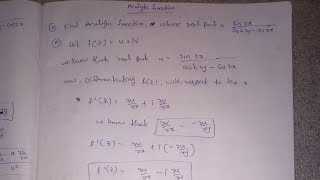 Analytic function
Find Analytic function, whose real part is sin 2x / cosh 2y - cos 2x
Let f(z) = u + iv
we know that real part u = sin 2x / cosh 2y - cos 2x
now, Differentiating f(z), with respect to
f'(z) = ∂u/∂x + i ∂v/∂x
we know that ∂v/∂x = -∂u/∂y
f'(z) = ∂u/∂x + i(-∂u/∂y)
f'(z) = ∂u/∂x - i ∂u/∂y